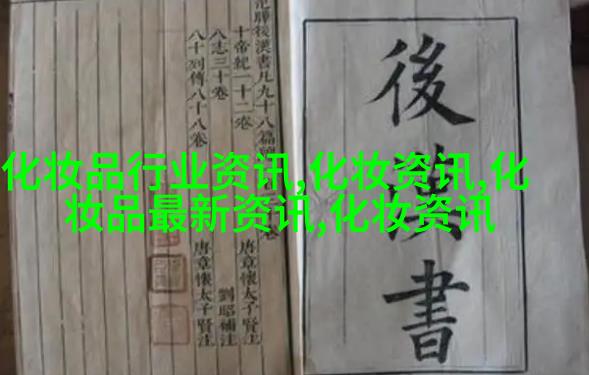 後漢書
范曄後漢書凡九十八篇
十帝紀一十二卷
八志三十卷
八十列傳八十八卷
唐章懷太子賢注
劉昭補注
唐章懷太子賢注
化妆品行业资讯,化妆资讯,化
妆品最新资讯,化妆资讯